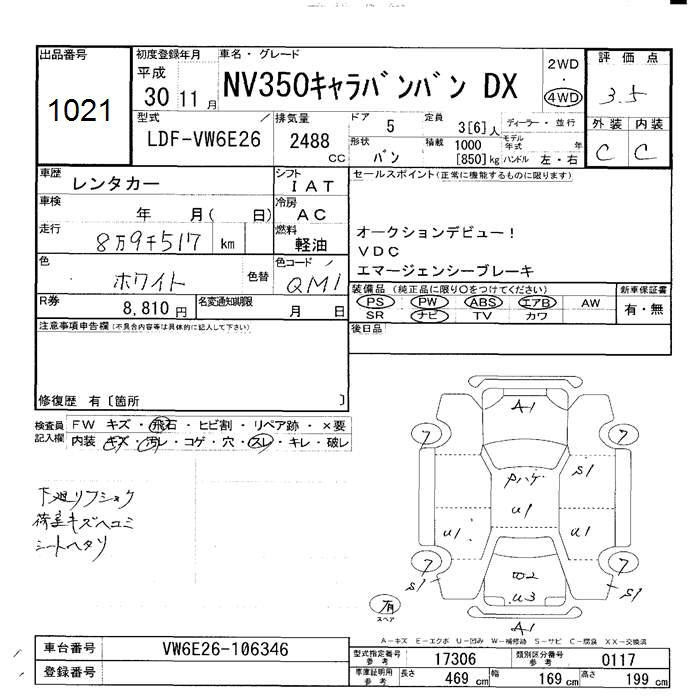 出品番号
1021
初度登録年月
平成
30 11 月
車名・グレード
NV350キャラバンバン DX
2WD
・
4WD
評 価 点
3.5
外 装 内 装
C C
型式
LDF-VW6E26
排気量
2488
CC
ドア
5
定員
3[6]人
形状
バン
積載
1000
[850]kg
ディーラー・並行
モデル
年式
年
ハンドル 左・右
車歴
レンタカー
シフト
IAT
車検
年 月( 日)
冷房
AC
走行
8万9千517 km
燃料
軽油
色
ホワイト
色替
色コード
QM1
R券
8,810 円
名変通知期限
月 日
セールスポイント(正常に機能するものに限ります)
オークションデビュー!
VDC
エマージェンシーブレーキ
装備品 (純正品に限り○をつけてください)
PS PW ABS エアB AW
SR ナビ TV カワ
新車保証書
有・無
後日品
注意事項申告欄(不具合内容等は具体的に記入して下さい)
修復歴 有〔箇所 〕
検査員
記入欄
FW キズ・飛石・ヒビ割・リペア跡・×要
内装 キズ・汚レ・コゲ・穴・スレ・キレ・破レ
下廻リフショク
荷室キズヘコミ
シートヘタリ
A1
7
7
S1
Pハゲ
U1
U1
U1
7
7
S1
S1
W2
U3
A1
有
スペア
A-キズ E-エクボ U-凹み W-補修跡 S-サビ C-腐食 XX-交換済
車台番号
VW6E26-106346
登録番号
型式指定番号
参考
17306
類別区分番号
参考
0117
車庫証明用
参考
長さ
469 cm
幅
169 cm
高さ
199 cm